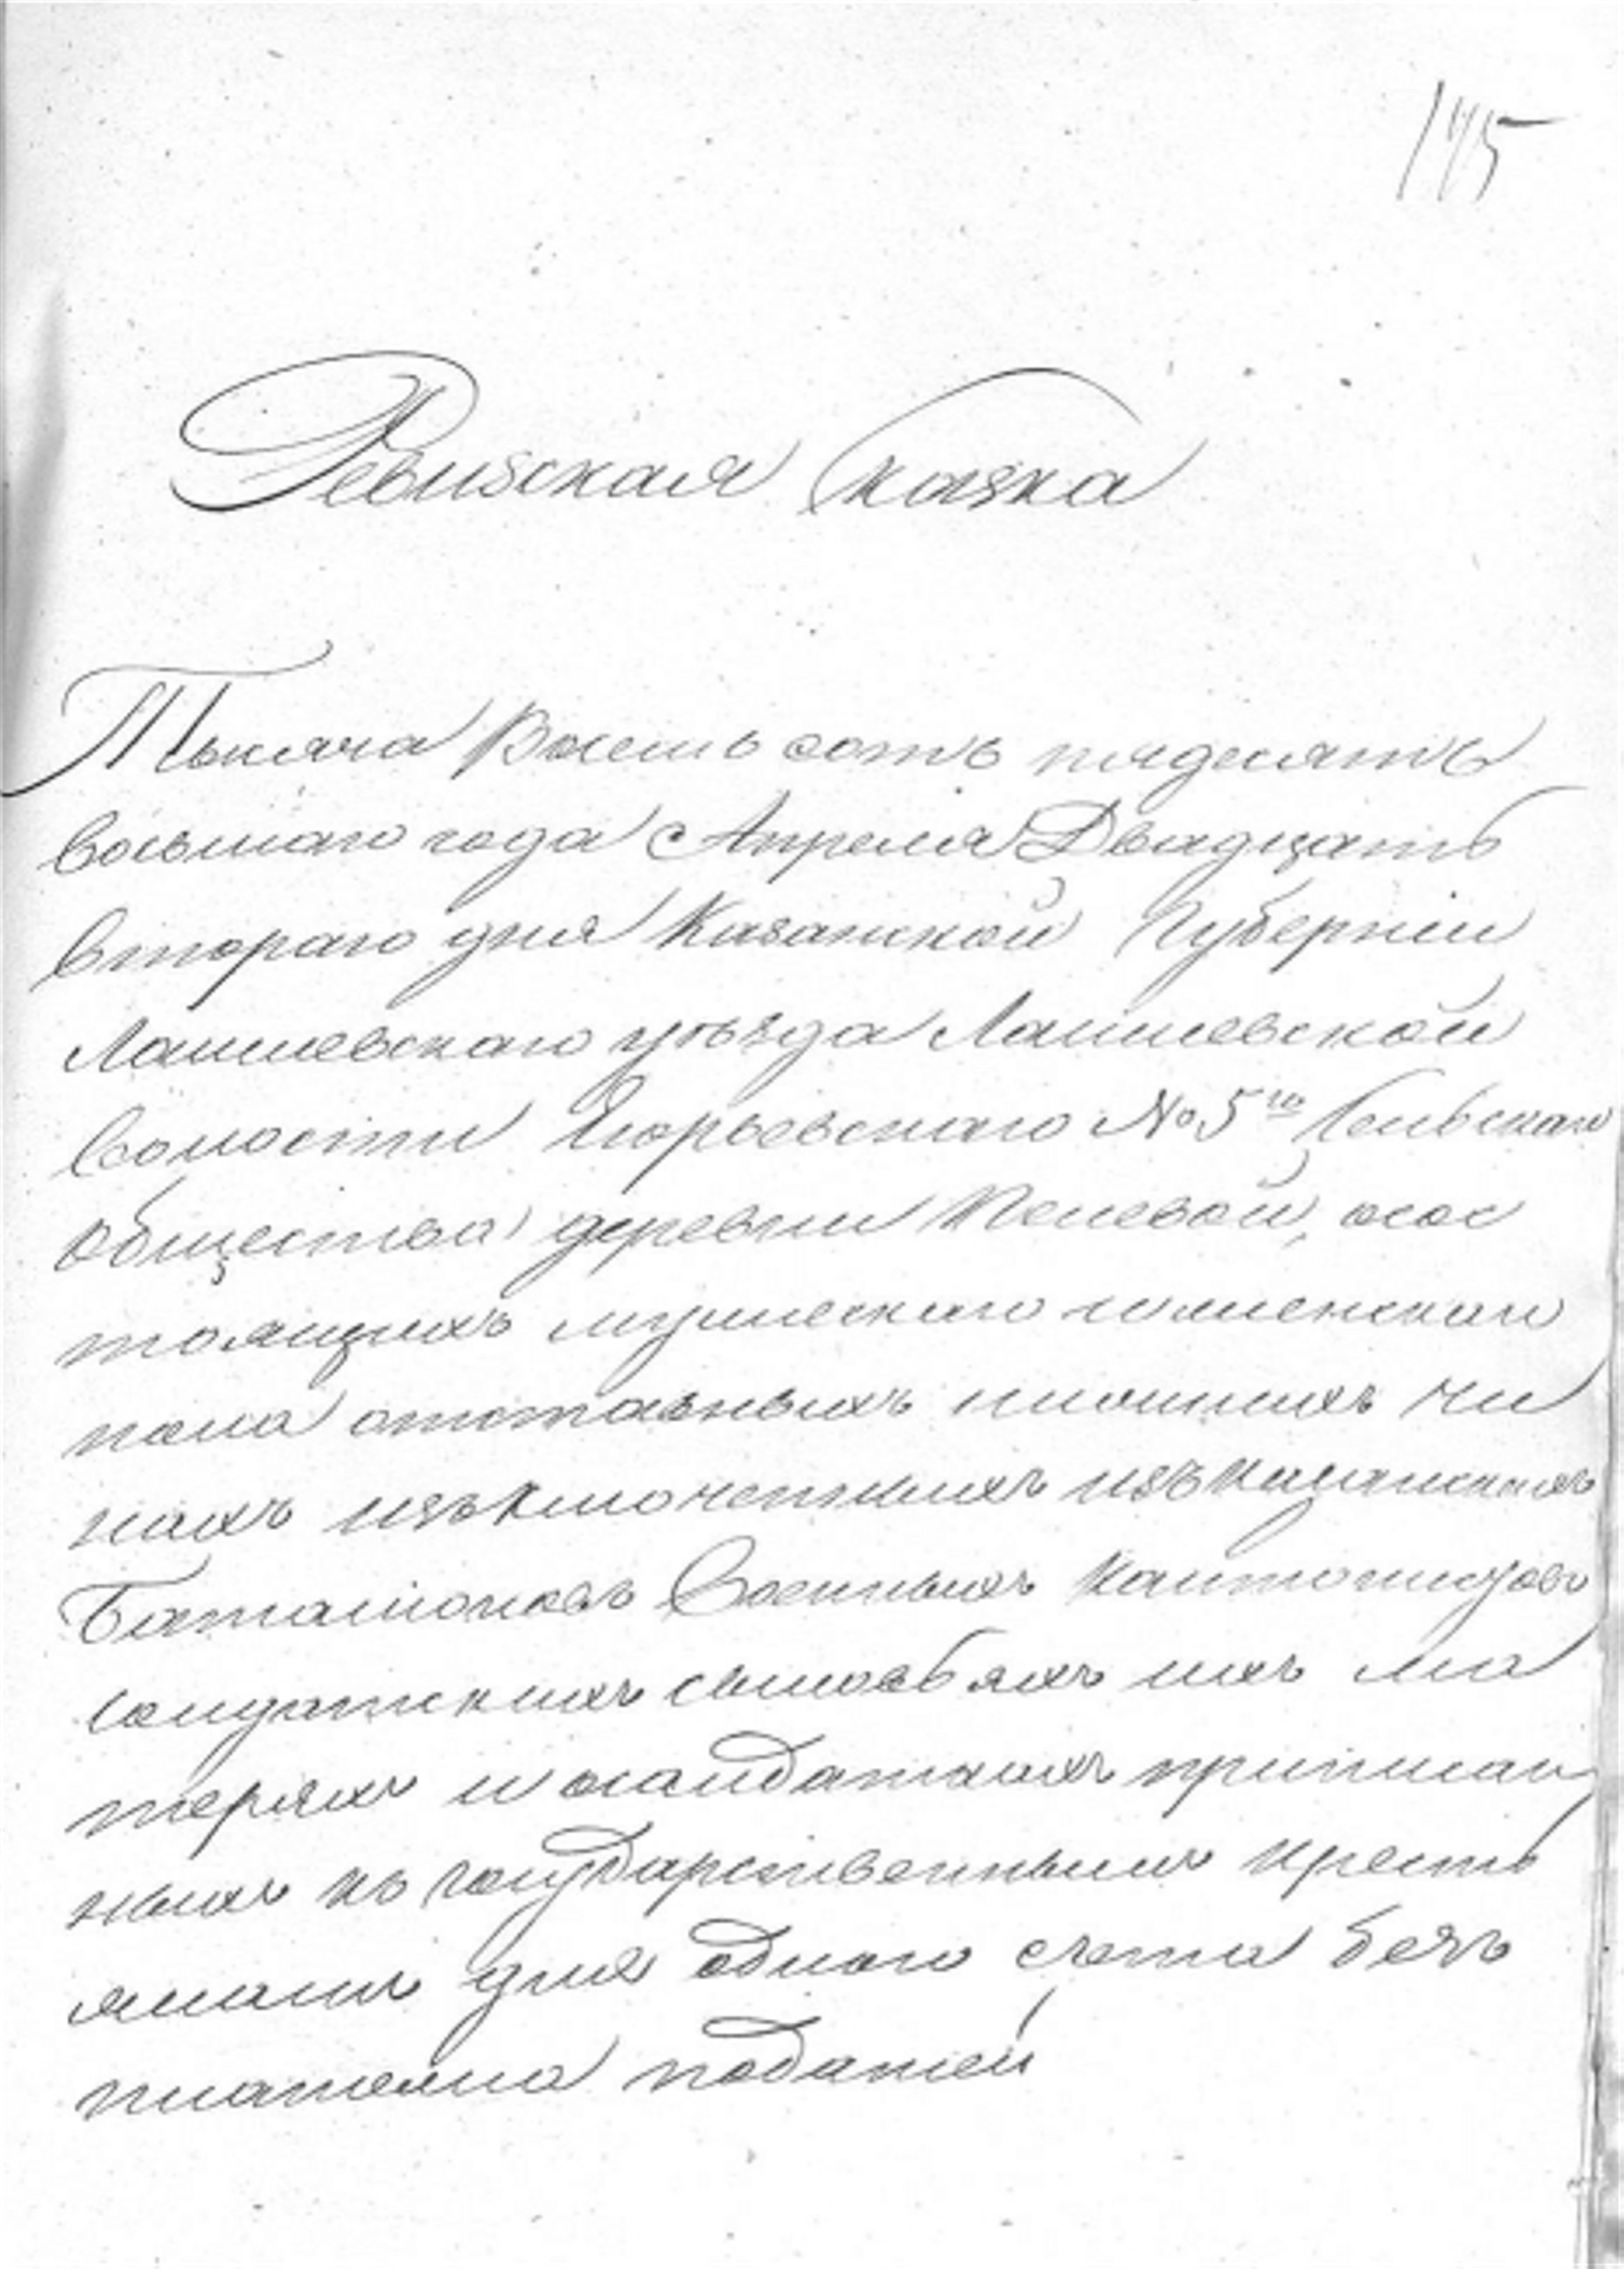 145
Ревизская Сказка
Тысяча Восемь сотъ пядесятъ
восьмаго года Апреля Двадцать
втораго дня Казанской Губерніи
Лаишевскаго уѣзда Лаишевской
волости Егорьевскаго № 5го Сельскаго
общества деревни осос
тоящихъ мужескаго и женскаго
пола отставныхъ нижнихъ чи
нахъ изъключенныхъ изъ Казанскихъ
Баталіоновъ Военныхъ Кантонистовъ
солдатскихъ сыновьяхъ ихъ ма
теряхъ и осолдаткахъ приписан
ныхъ къ государственнымъ кресть
янамъ для одного счета безъ
платежа податей